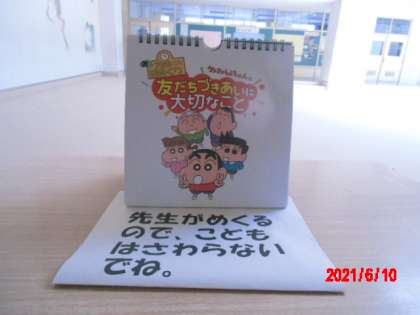 クレヨンしんちゃんの
友だちづきあいに
大切なこと
先生がめくる
ので、こども
はさわらない
でね。
2021/6/10